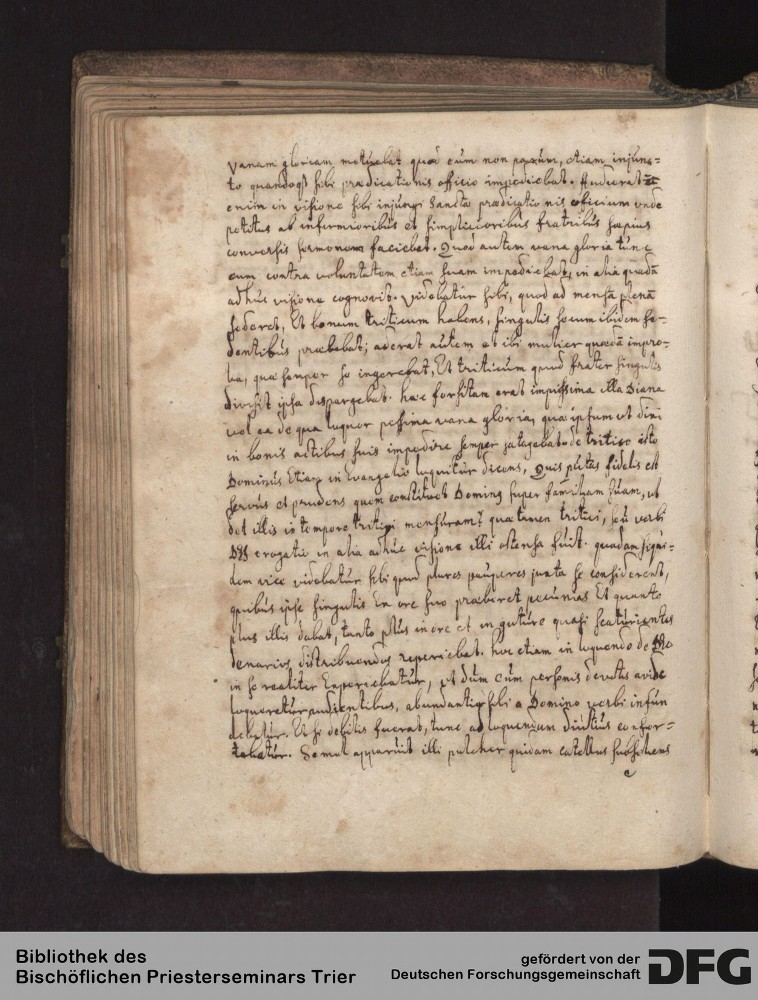 vanam gloriam metuebat quod eum non parum, etiam injunc=
to quandoq3 sibi praedicationis officio impediebat. Auderat
enim in visione sibi injungi sanctae praedicationis officium unde
petitus ab infirmioribus et simplicioribus fratribus saepius
conversis sermonem faciebat. Quod autem vana gloria tunc
eum contra voluntatem etiam suam impediebat, in alia quadā
adhuc visione cognovit. videbatur sibi, quod ad mensā plenā
sederet, Et bonum triticum habens, singulis secum ibidem se=
dentibus praebebat; aderat autem et ibi mulier quaedā impro=
ba, quae semper se ingerebat, Et triticum quod frater singulis
divisit ipsa dispargebat. haec forsitam erat impissima illa Diana
vel ea de qua loquor pessima vana gloria, quae ipsum ut dixi
in bonis actibus suis impedire semper satagebat de tritico isto
Dominus Etiam in Evangelio loquitur dicens, Quis putas fidelis est
servus et prudens quem constituet Dominus super familiam suam, ut
det illis in tempore tritici mensuram? quae tamen tritici, seu verbi
erogatio in alia adhuc visione illi ostensa fuit. quadam siqui=
dem vice videbatur sibi quod plures pauperes juxta se considerent,
quibus ipse singulis Ex ore suo praeberet pecunias Et quanto
plus illis dabat, tanto plus in ore et in guture quasi scaturientes
denarios distribuendos reperiebat. hoc etiam in loquendo de
in se realiter Experiebatur, ut dum cum personis devotis avide
loqueretur audientibus, abundantius sibi a Domino verbi infun
debatur. Et si debilis fuerat, tunc ad loquendum diutius confor=
tabatur. Semel apparuit illi pulcher quidam catellus subsiliens
Bibliothek des
Bischöflichen Priesterseminars Trier
gefördert von der
Deutschen Forschungsgemeinschaft
DFG